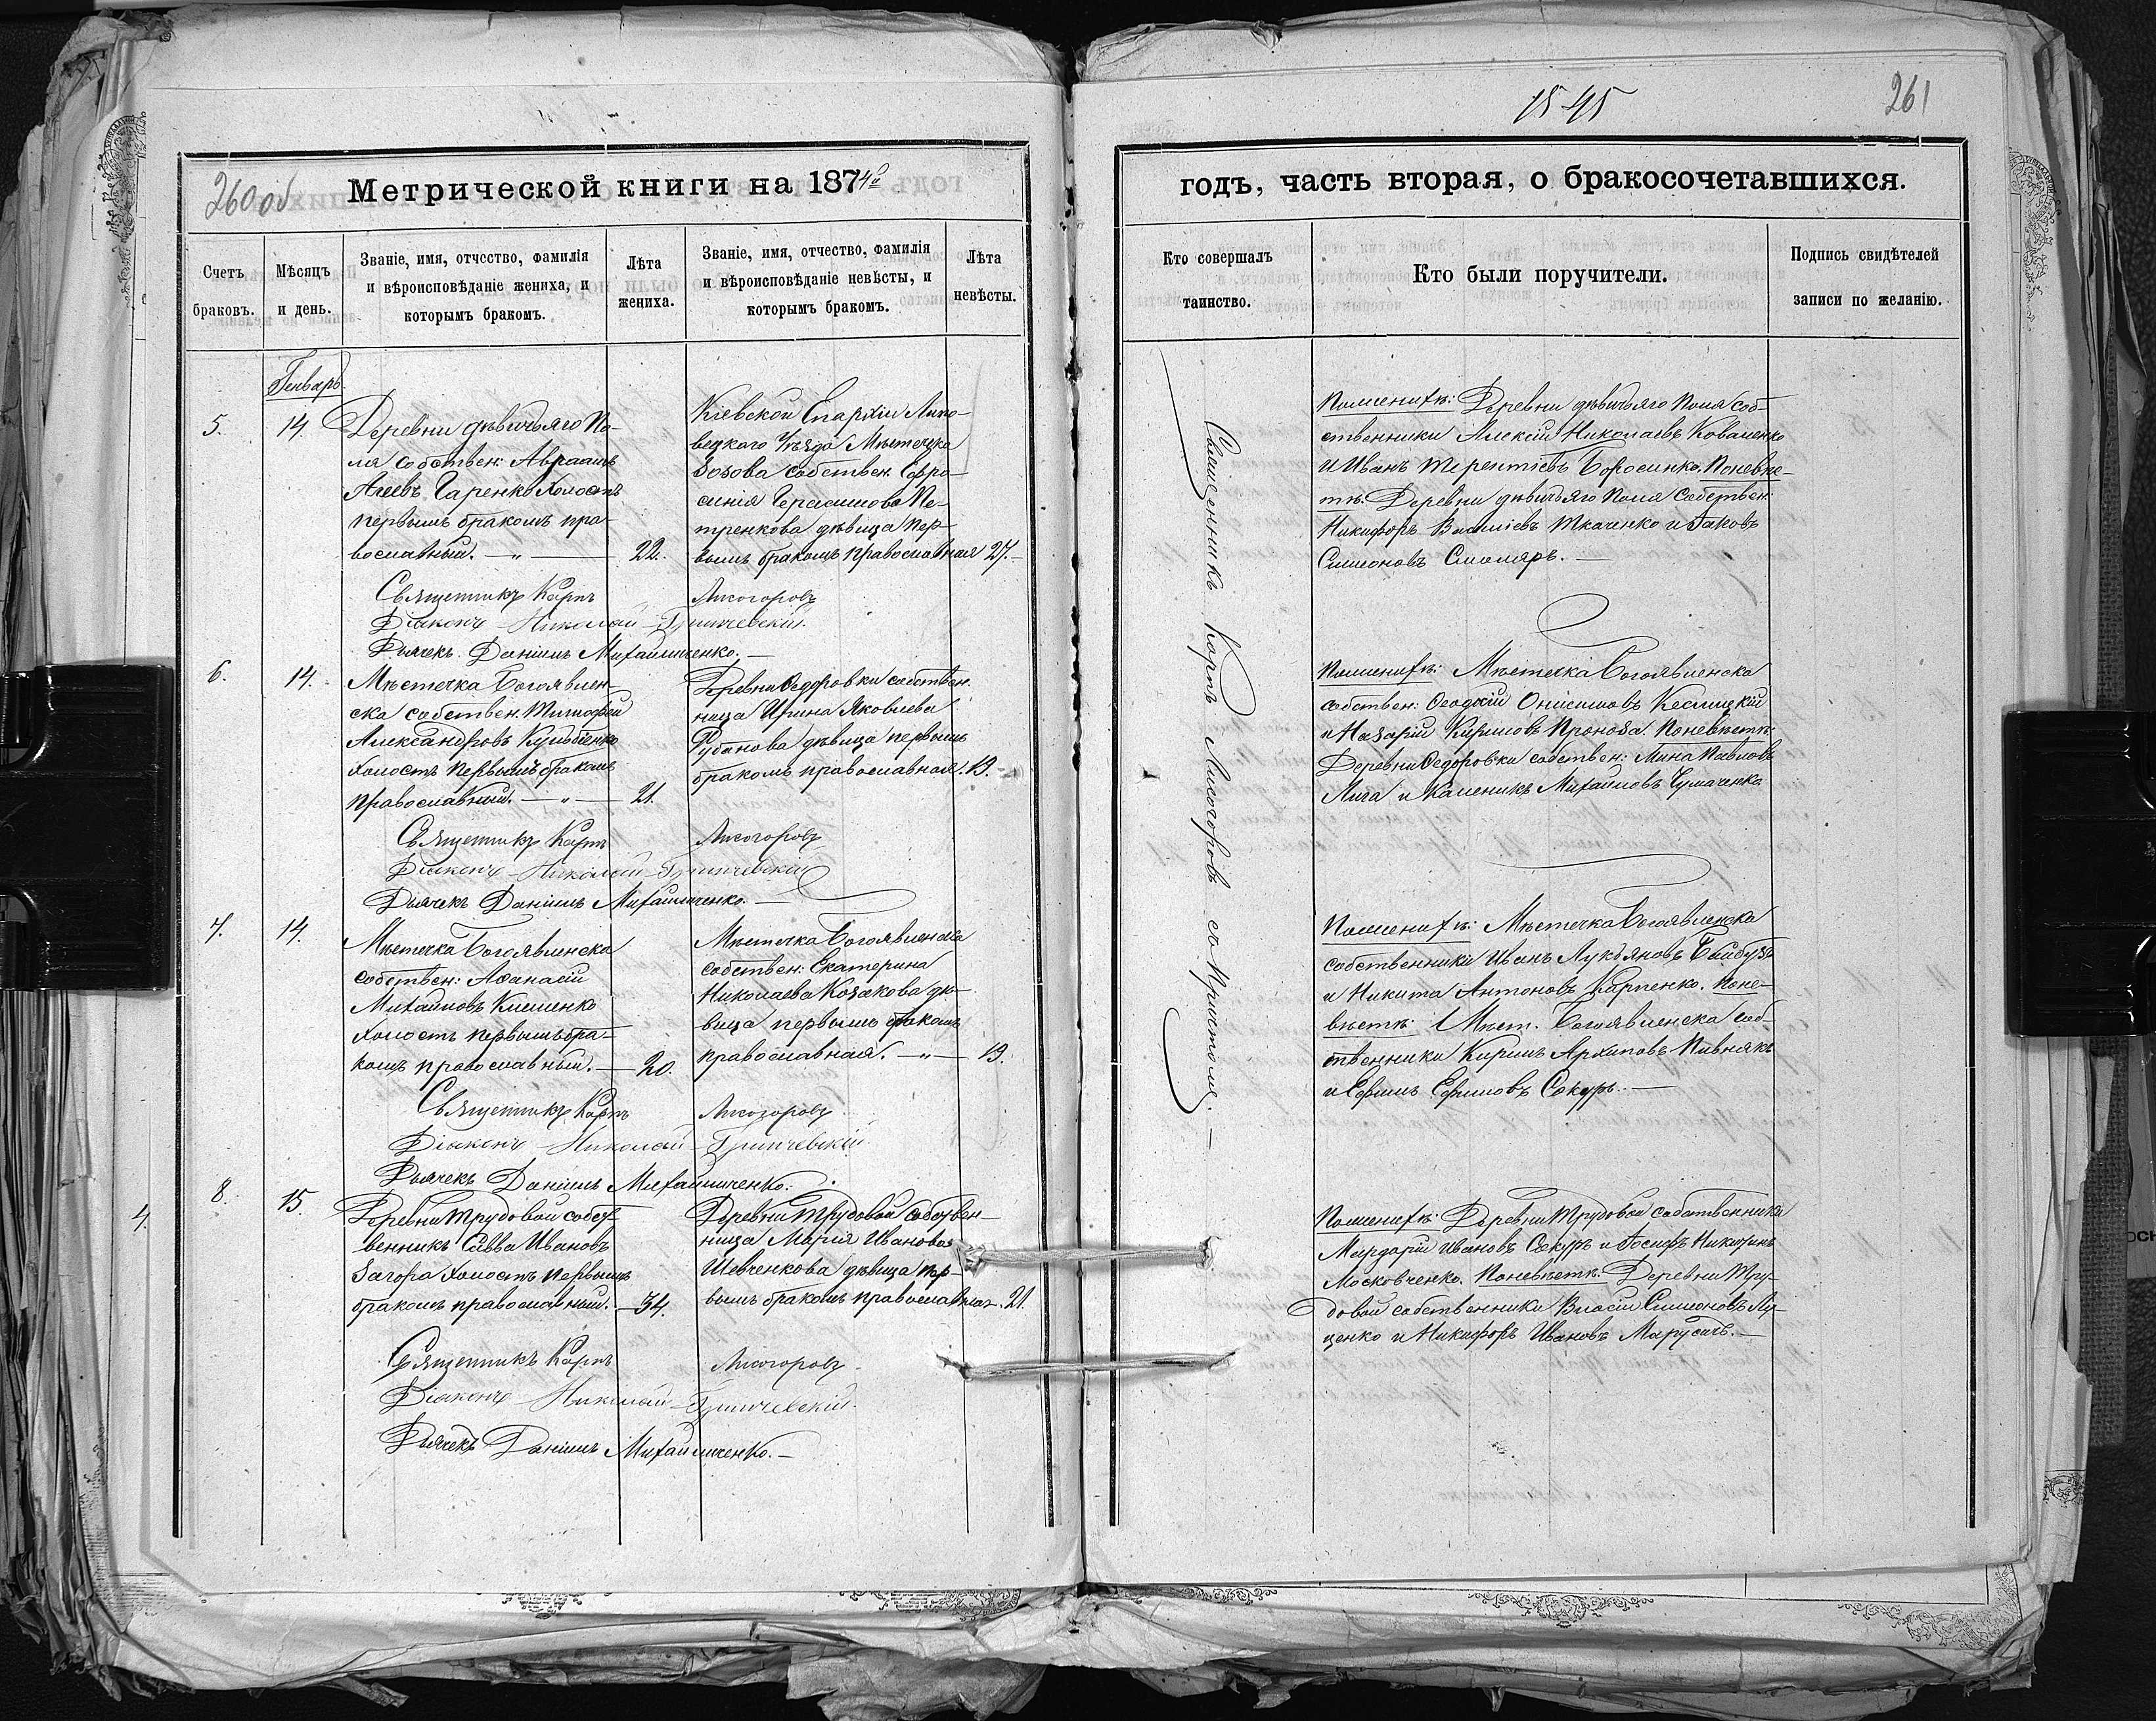 260 об
Метрической книги на 1874й
Счетъ браковъ.
Мѣсяцъ и день.
Званіе, имя, отчество, фамилія и вѣроисповѣданіе жениха, и которымъ бракомъ.
Лѣта жениха.
Званіе, имя, отчество, фамилія и вѣроисповѣданіе невѣсты, и которымъ бракомъ.
Лѣта невѣсты.
Генварь
5.
14.
Деревни Дѣвичьяго По-
ля собствен: Авраамъ
Агеевъ Гаренко холостъ
первымъ бракомъ пра-
вославный. — „ —
22.
Кіевской Епархіи Липо-
вецкаго Уѣзда Мѣстечка
Зозова собствен. Ефро-
синія Герасимова Пе-
тренкова дѣвица пер-
вымъ бракомъ православная
27. —
Священникъ Карпъ Лисогоровъ
Діаконъ Николай
Дьячекъ Даніилъ Михайличенко. —
6.
14.
Мѣстечка Богоявлен-
ска собствен. Тимофей
Александровъ
холостъ первымъ бракомъ
православный. — „ —
21.
Деревни Федоровки собствен.
ница Ирина Яковлева
Рубанова дѣвица первымъ
бракомъ православная.
19. —
Священникъ Карпъ Лисогоровъ
Діаконъ Николай
Дьячекъ Даніилъ Михайличенко. —
7.
14.
Мѣстечка Богоявленска
собствен: Афанасій
Михайловъ Клименко
холостъ первымъ бра-
комъ православный. —
20.
Мѣстечка Богоявленска
собствен: Екатерина
Николаева Козакова дѣ-
вица первымъ бракомъ
православная. — „ —
19.
Священникъ Карпъ Лисогоровъ
Діаконъ Николай
Дьячекъ Даніилъ Михайличенко.
8.
15.
4.
Деревни Трудовой собст-
венникъ Савва Ивановъ
Загора холостъ первымъ
бракомъ православный. —
34.
Деревни Трудовой собствен-
ница Марія Иванова
Шевченкова дѣвица пер-
вымъ бракомъ православная.
21.
Священникъ Карпъ Лисогоровъ
Діаконъ Николай
Дьячекъ Даніилъ Михайличенко. —
1545
261
годъ, часть вторая, о бракосочетавшихся.
Кто совершалъ таинство.
Кто были поручители.
Подпись свидѣтелей записи по желанію.
Священникъ Карпъ Лисогоровъ съ Причтомъ. —
По женихѣ: Деревни Дѣвичьяго Поля соб-
ственники Алексій Николаевъ Коваленко
и Иванъ Терентіевъ По невѣс-
тѣ. Деревни Дѣвичьяго Поля Собствен.
Никифоръ Василіевъ Ткаченко и Іаковъ
Симеоновъ Смоляръ. —
По женихѣ: Мѣстечка Богоявленска
собствен: Феодосій Онисимовъ
и Назарій Кириловъ Проноза. По невѣстѣ:
Деревни Федоровки собствен: Мина Павловъ
и Каленикъ Михайловъ Чумаченко
По женихѣ: Мѣстечка Богоявленска
собственники Иванъ Лукьяновъ Байбузъ
и Никита Антоновъ Карпенко. По не-
вѣстѣ: Мѣст. Богоявленска соб-
твенники Кирилъ Архиповъ Пивнякъ
и Ефимъ Ефимовъ Сокуръ. —
По женихѣ: Деревни Трудовой собственники
Мардарій Ивановъ Сокуръ и Іосифъ Никитинъ
Московченко. По невѣстѣ. Деревни Тру-
довой собственники Власій Симеоновъ Лу-
ценко и Никифоръ Ивановъ Марусичъ. —